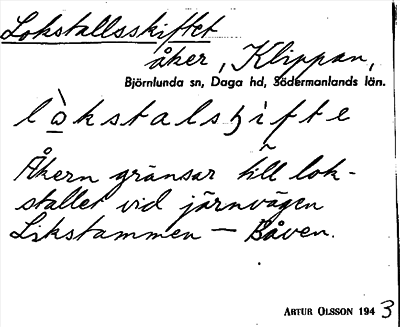 Lokstallsskiftet
åker, Klippan,
Björnlunda sn, Daga hd, Södermanlands län.
lò̲kstalsʃifte
Åkern gränsar till lok-
stallet vid järnvägen
Likstammen – Båven.
ARTUR OLSSON 1943